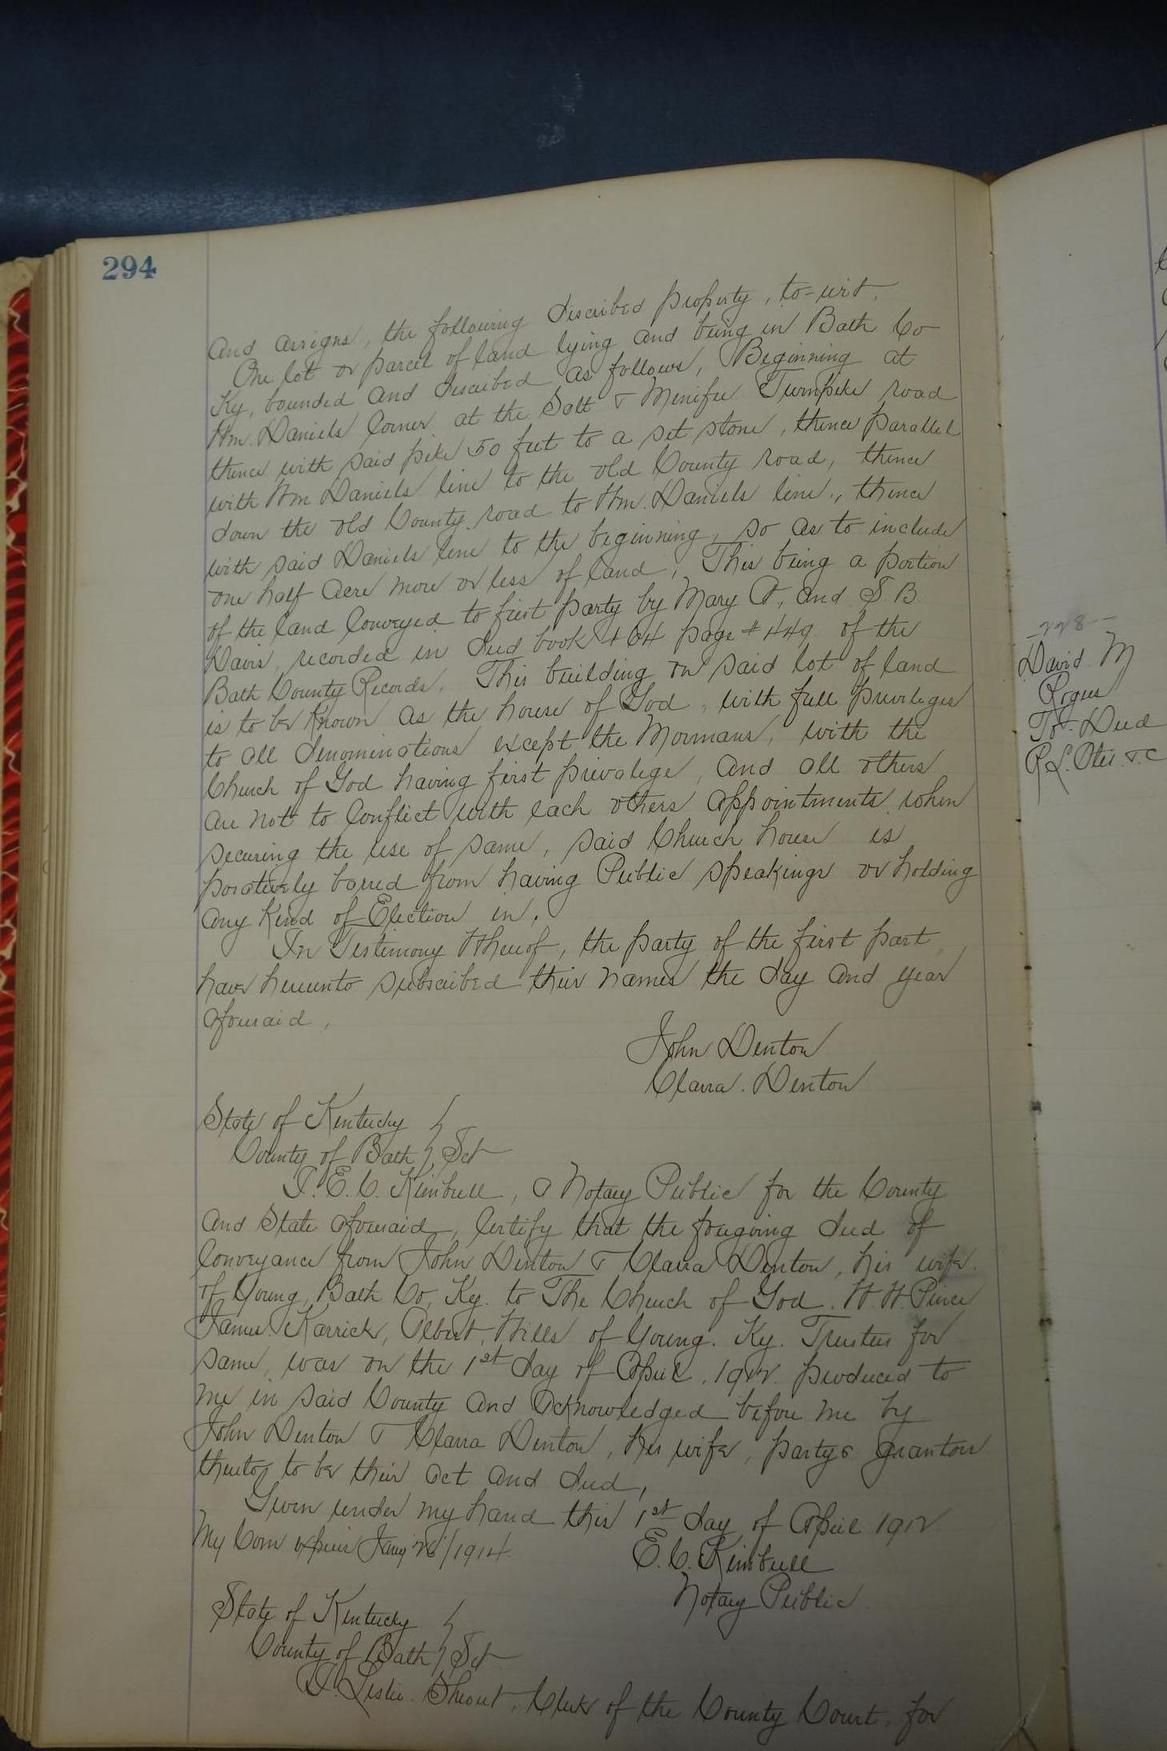 294
and assigns, the following discribed property, to-wit.
One lot or parcel of land lying and being in Bath Co
Ky, bounded and discribed as follows, Beginning at
Wm. Daniels Corner at the Salt & Menifee Turnpike road
thence with said pike 50 feet to a set stone, thence parallel
with Wm Daniels line to the old County road, thence
down the old County road to Wm. Daniels line, thence
with said Daniels line to the beginning, so as to include
one half acre more or less of land, This being a portion
of the land Conveyed to first party by Mary A, and S B
Davis, recorded in Deed book # 64 page # 449 of the
Bath County Records. This building on said lot of land
is to be known as the house of God, with full privileges
to all denominations except the Mormans, with the
Church of God having first privalege, and all others
are not to Conflict with each others appointments when
securing the use of same, said Church house is
positively barred from having Public speakings or holding
any kind of Election in.
In Testimony Whereof, the party of the first part,
have hereunto subscribed their names the day and year
aforesaid,
John Denton
Clarra. Denton
State of Kentucky
County of Bath } Sct
I. E. C. Kimbrell, a Notary Public for the County
and State aforesaid, Certify that the foregoing deed of
Conveyance from John Denton & Clarra Denton, his wife
of Young, Bath Co, Ky. to The Church of God. W. H. Pierce
James Karrick, Albert Wills of Young. Ky. Trustees for
same, was on the 1st day of April, 1912. produced to
me in said County and acknowledged before me by
John Denton & Clarra Denton, his wife, partys grantors
thereto, to be their act and deed,
Given under my hand this 1st day of April 1912
My Com expires Jany 26/1914
E. C. Kimbrell
Notary Public.
State of Kentucky
County of Bath } Sct
I. Leslie Shrout, Clerk of the County Court, for
-228-
David M
Rogers
To Deed
R. L. Otis &C